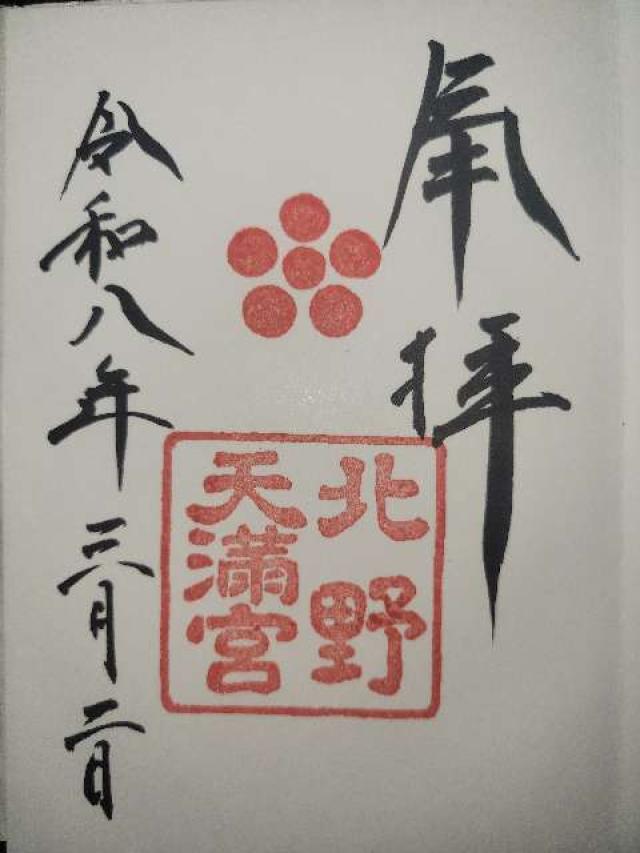 奉拝
北野
天満宮
令和八年三月二日